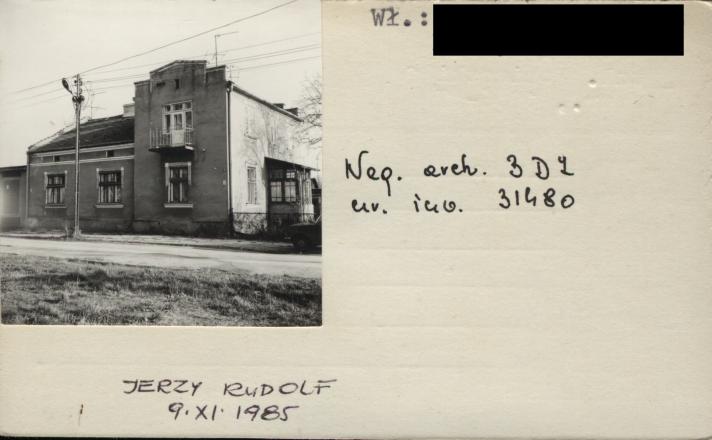 WŁ.:
Neg. arch. 3 D Z
nr. inw. 31480
JERZY RUDOLF
9.XI.1985